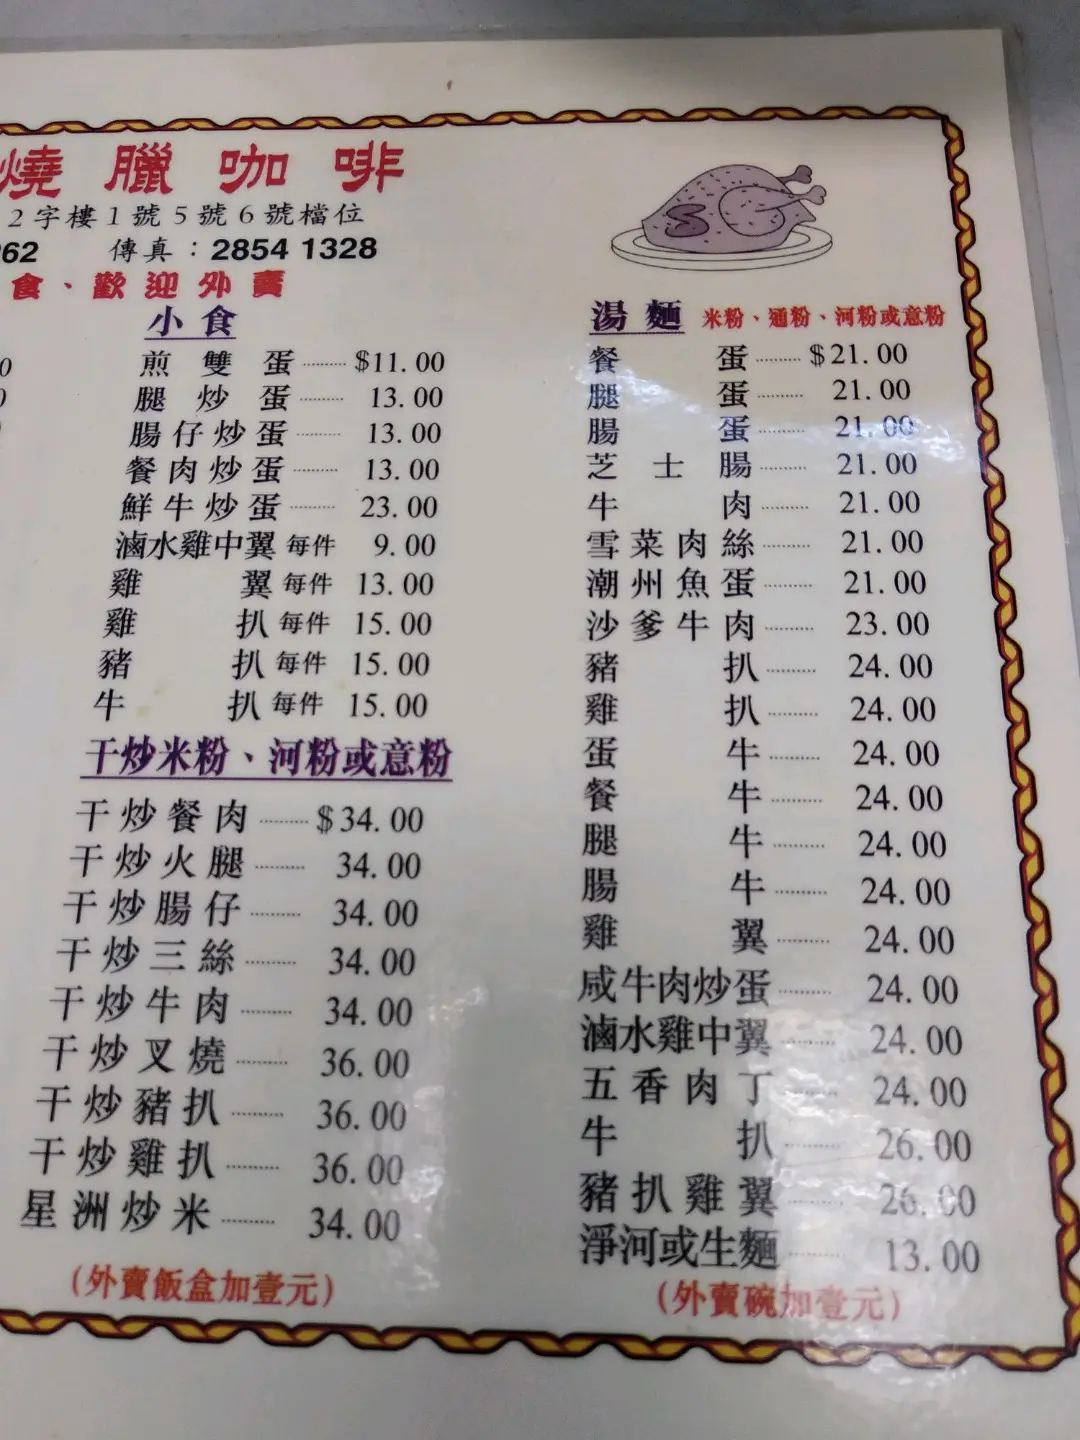 燒臘咖啡
2字樓1號5號6號檔位
262 傳真：2854 1328
食、歡迎外賣
小食
煎雙蛋 $11.00
腿炒蛋 13.00
腸仔炒蛋 13.00
餐肉炒蛋 13.00
鮮牛炒蛋 23.00
滷水雞中翼 每件 9.00
雞翼 每件 13.00
雞扒 每件 15.00
豬扒 每件 15.00
牛扒 每件 15.00
干炒米粉、河粉或意粉
干炒餐肉 $34.00
干炒火腿 34.00
干炒腸仔 34.00
干炒三絲 34.00
干炒牛肉 34.00
干炒叉燒 36.00
干炒豬扒 36.00
干炒雞扒 36.00
星洲炒米 34.00
(外賣飯盒加壹元)
湯麵 米粉、通粉、河粉或意粉
餐蛋 $21.00
腿蛋 21.00
腸蛋 21.00
芝士腸 21.00
牛肉 21.00
雪菜肉絲 21.00
潮州魚蛋 21.00
沙爹牛肉 23.00
豬扒 24.00
雞扒 24.00
蛋牛 24.00
餐牛 24.00
腿牛 24.00
腸牛 24.00
雞翼 24.00
咸牛肉炒蛋 24.00
滷水雞中翼 24.00
五香肉丁 24.00
牛扒 26.00
豬扒雞翼 26.00
淨河或生麵 13.00
(外賣碗加壹元)